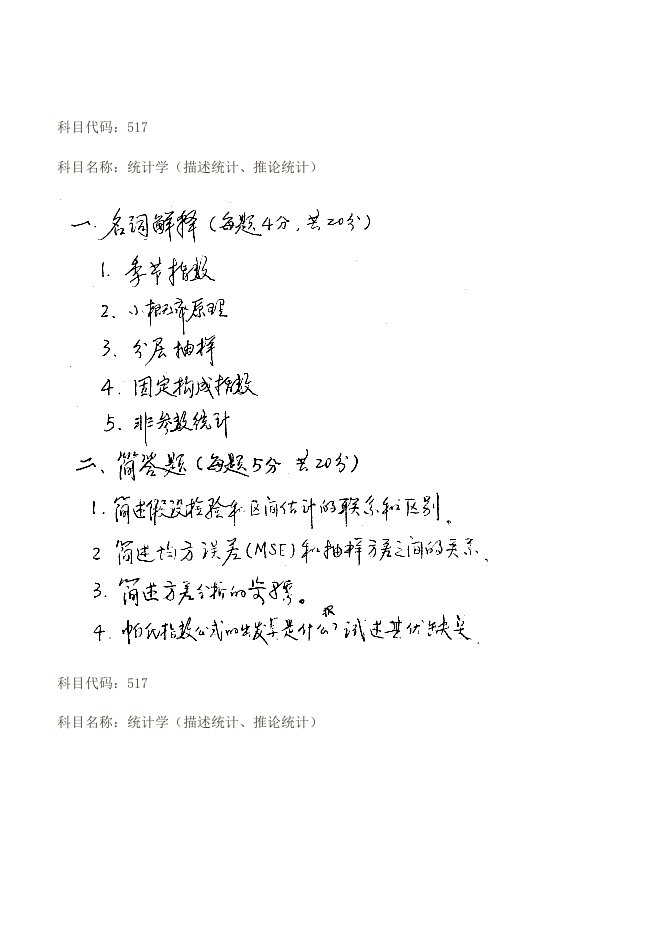 科目代码：517
科目名称：统计学（描述统计、推论统计）
一. 名词解释（每题4分，共20分）
1. 季节指数
2. 小概率原理
3. 分层抽样
4. 固定构成指数
5. 非参数统计
二、简答题（每题5分 共20分）
1. 简述假设检验和区间估计的联系和区别。
2 简述均方误差(MSE)和抽样方差之间的关系.
3. 简述方差分析的步骤。
4. 帕氏指数公式的出发点是什么？试述其优缺点
科目代码：517
科目名称：统计学（描述统计、推论统计）